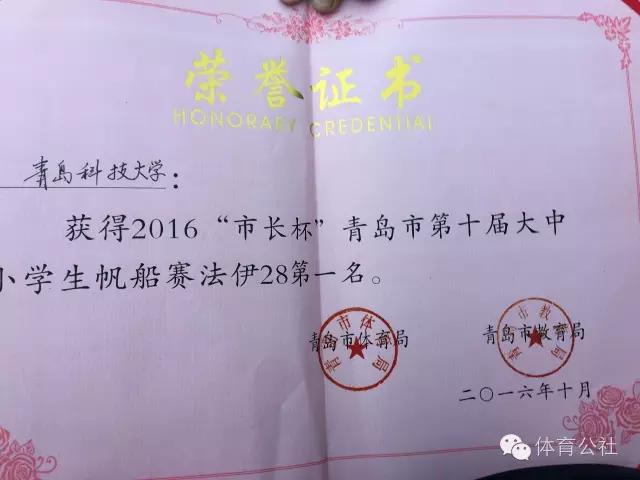 荣誉证书
HONORARY CREDENTIAL
青岛科技大学：
获得2016“市长杯”青岛市第十届大中
小学生帆船赛法伊28第一名。
青岛市体育局
青岛市教育局
二〇一六年十月
体育公社